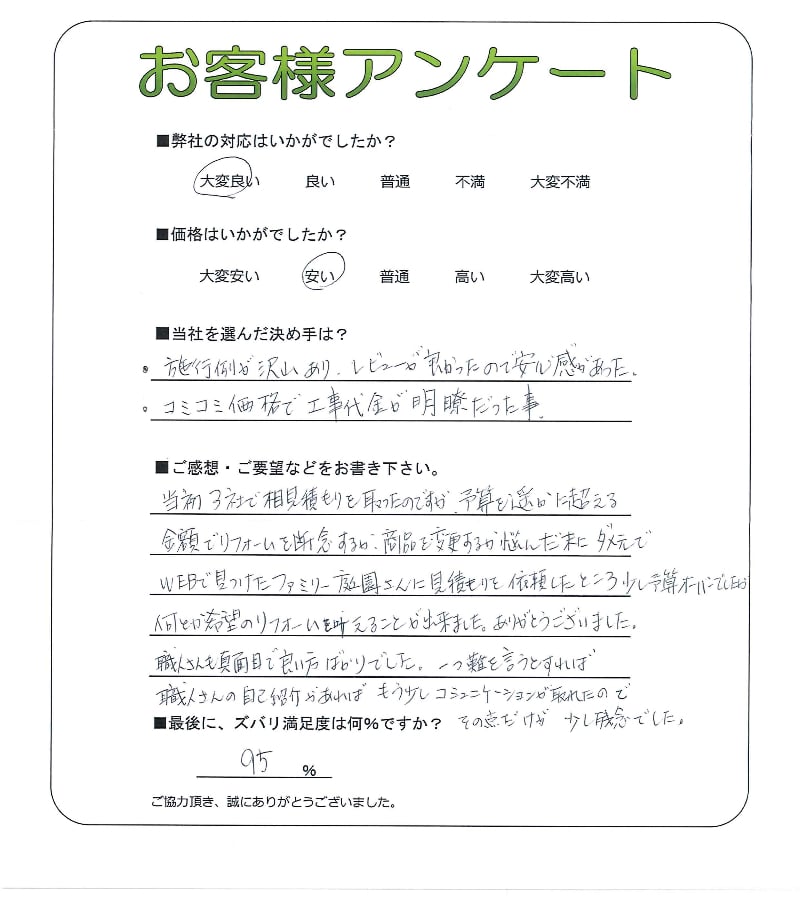 お客様アンケート
■弊社の対応はいかがでしたか？
大変良い 良い 普通 不満 大変不満
■価格はいかがでしたか？
大変安い 安い 普通 高い 大変高い
■当社を選んだ決め手は？
・施行例が沢山あり、レビューが良かったので安心感があった。
・コミコミ価格で工事代金が明瞭だった事。
■ご感想・ご要望などをお書き下さい。
当初3社で相見積もりを取ったのですが、予算を遥かに超える
金額でリフォームを断念するか、商品を変更するか悩んだ末にダメ元で
WEBで見つけたファミリー庭園さんに見積もりを依頼したところ少し予算オーバーでしたが
何とか希望のリフォームを叶えることが出来ました。ありがとうございました。
職人さんも真面目で良い方ばかりでした。一つ難を言うとすれば
職人さんの自己紹介があれば もう少しコミュニケーションが取れたので
■最後に、ズバリ満足度は何%ですか？ その点だけが 少し残念でした。
95 %
ご協力頂き、誠にありがとうございました。